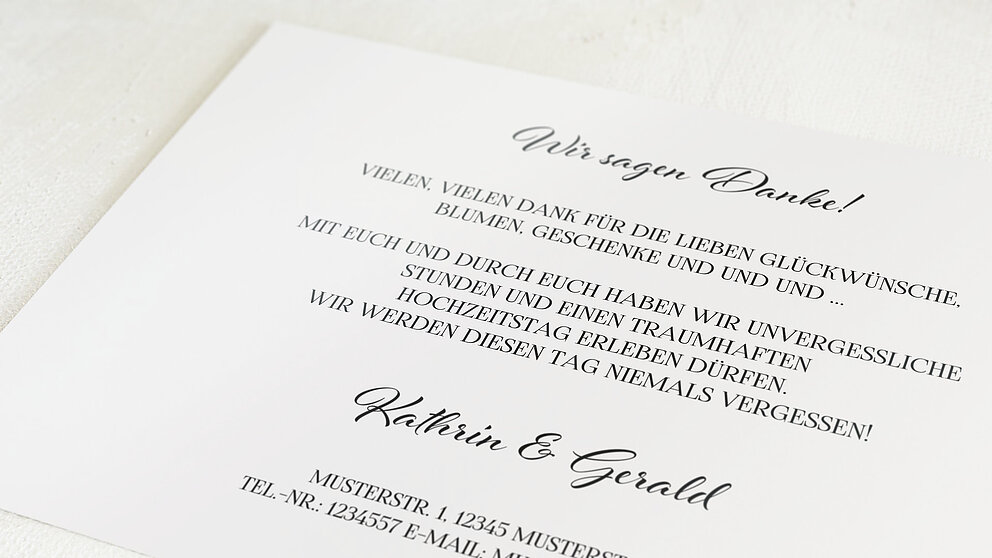 Wir sagen Danke!
VIELEN, VIELEN DANK FÜR DIE LIEBEN GLÜCKWÜNSCHE,
BLUMEN, GESCHENKE UND UND UND ...
MIT EUCH UND DURCH EUCH HABEN WIR UNVERGESSLICHE
STUNDEN UND EINEN TRAUMHAFTEN
HOCHZEITSTAG ERLEBEN DÜRFEN.
WIR WERDEN DIESEN TAG NIEMALS VERGESSEN!
Kathrin & Gerald
MUSTERSTR. 1, 12345 MUSTERST
TEL.-NR.: 1234557 E-MAIL: